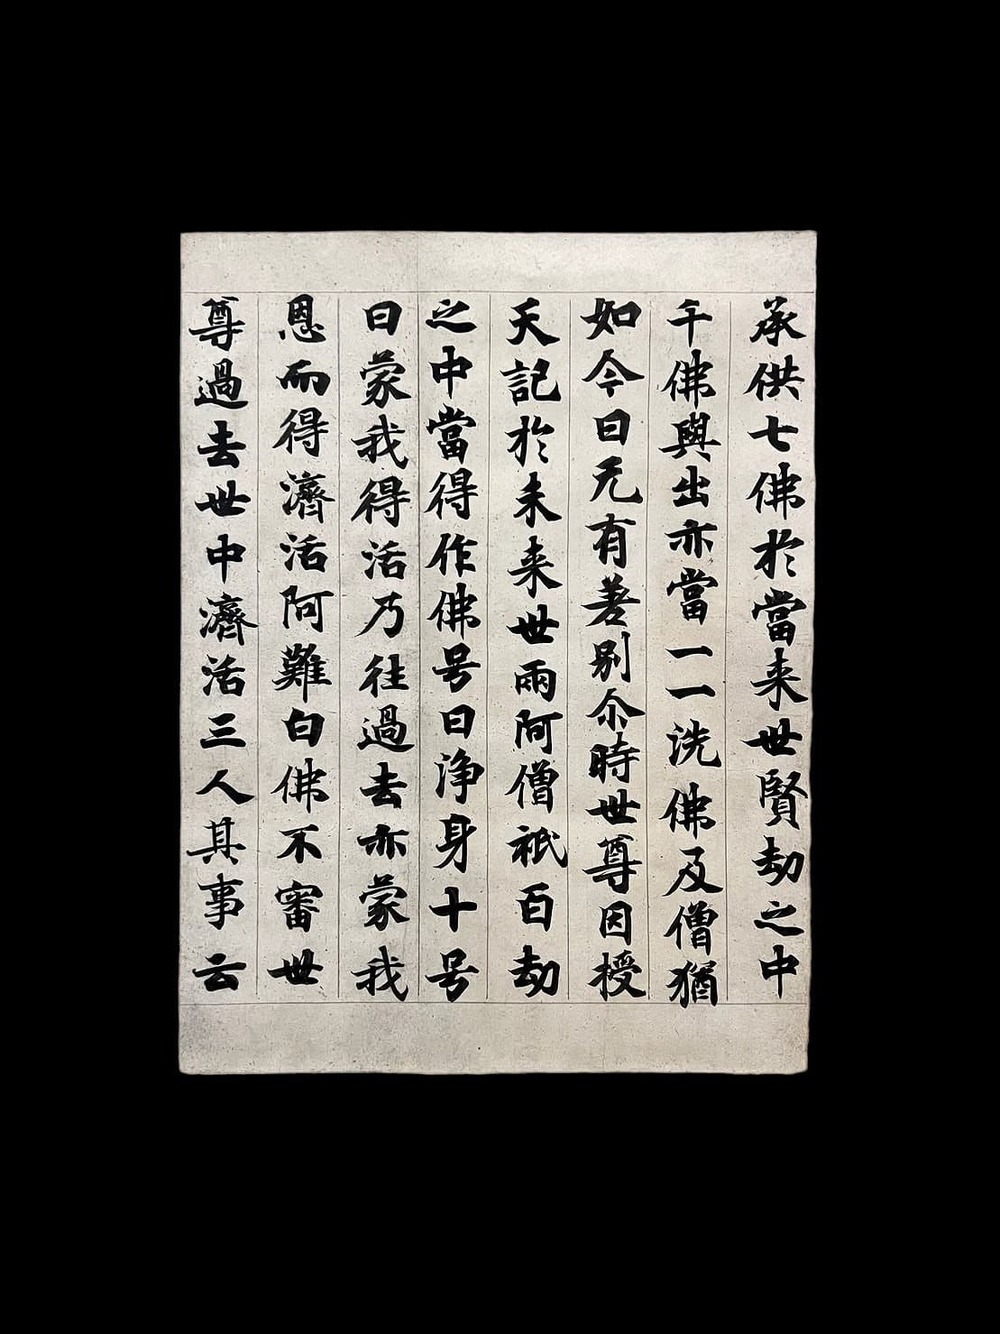 承供七佛於當来世賢劫之中
千佛興出亦當一一洗佛及僧猶
如今日无有差别尒時世尊因授
天記於未来世兩阿僧祇百劫
之中當得作佛号曰浄身十号
日蒙我得活乃往過去亦蒙我
恩而得濟活阿難白佛不審世
尊過去世中濟活三人其事云